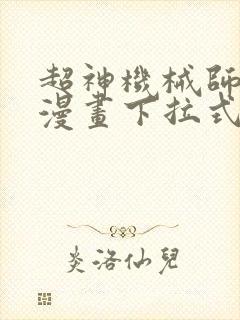 超神機械師
漫畫下拉式
炎洛仙兒